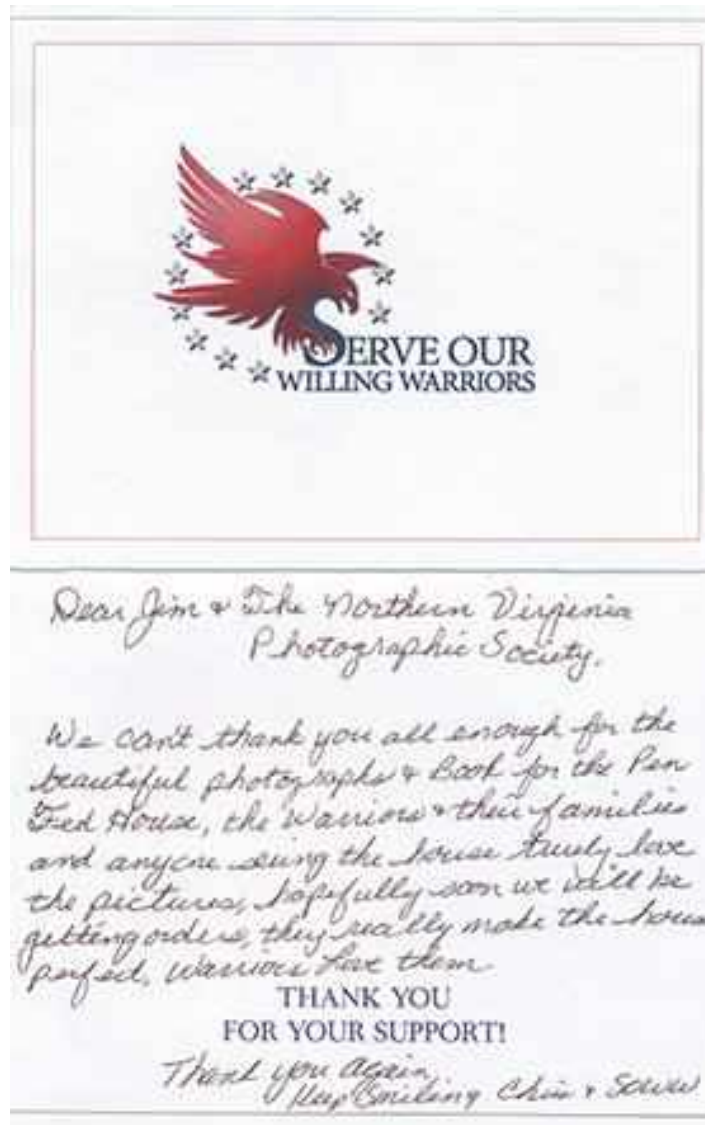 SERVE OUR
WILLING WARRIORS
Dear Jim & The Northern Virginia
Photographic Society,
We can't thank you all enough for the
beautiful photographs & Book for the Pen
Fed House, the Warriors & their families
and anyone seing the house truely love
the pictures, hopefully soon we will be
getting orders, they really make the house
perfect, Warriors love them
THANK YOU
FOR YOUR SUPPORT!
Thank you again,
Keep Smiling Chris &